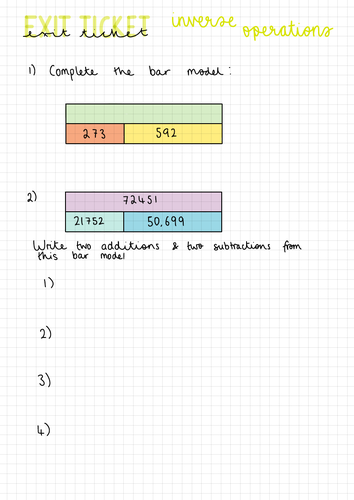 EXIT TICKET
exit ticket
inverse operations
1) Complete the bar model:
273 592
2) 72451
21752 50,699
Write two additions & two subtractions from
this bar model
1)
2)
3)
4)